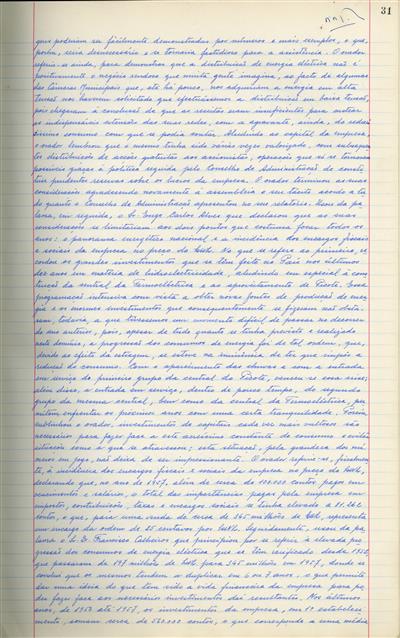 31
que poderiam ser fàcilmente demonstradas por números e mais exemplos, o que,
porém, seria desnecessário e se tornaria fastidioso para a assistência. O orador
referiu-se ainda, para demonstrar que a distribuição de energia eléctrica não é
pròpriamente o negócio rendoso que muita gente imagina, ao facto de algumas
das Câmaras Municipais que, até há pouco, nos adquiriam a energia em alta
tensão nos haverem solicitado que efectuássemos a distribuição em baixa tensão,
pois chegaram à conclusão de que as receitas eram insuficientes para
as indispensáveis extensões das suas redes, com a agravante, ainda, do
consumo com que se podia contar. Aludindo ao capital da empresa,
o orador lembrou que o mesmo tinha sido várias vezes valorizado, com
distribuições de acções gratuitas aos accionistas, operações que só se tornaram
possíveis graças à política seguida pelo Conselho de Administração de
prudentes reservas sobre os lucros da empresa. O orador terminou as suas
considerações agradecendo novamente à assembleia o seu
quanto o Conselho de Administração apresentou no seu relatório. Usou da pa-
lavra, em seguida, o Sr. Engº Carlos Alves que declarou que as suas
considerações se limitariam aos dois pontos que costuma focar todos os
anos: o panorama energético nacional e a incidência dos encargos fiscais
e sociais da empresa no preço do kWh. No que se refere ao primeiro, re-
cordou os grandes investimentos que se têm feito no País nos últimos
dez anos em matéria de hidroelectricidade, aludindo em especial à cons-
trução da central da Termoeléctrica e ao aproveitamento do Picote. Essa
programação intensiva com vista a obter novas fontes de produção de ener-
gia e os enormes investimentos que consequentemente se fizeram não obsta-
ram, todavia, a que tivéssemos um momento difícil de passar no decorrer
do ano anterior, pois, apesar de tudo quanto se tinha previsto e realizado
neste domínio, a progressão dos consumos de energia foi de tal ordem, que,
devido ao efeito da estiagem, se esteve na eminência de ter que impôr a
redução do consumo. Com o aparecimento das chuvas e com a entrada
em serviço do primeiro grupo da central do Picote, venceu-se essa crise;
além disso, a entrada em serviço, dentro de pouco tempo, do segundo
grupo da mesma central, bem como da central da Termoeléctrica, per-
mitem enfrentar os próximos anos com uma certa tranquilidade. Porém,
sublinhou o orador, investimentos de capitais cada vez mais vultosos são
necessários para fazer face a este acréscimo constante do consumo e evitar
situações como a que se atravessou; esta situação, pela grandeza dos nú-
meros em jogo, não deixa de ser impressionante. O orador referiu-se, final-
mente, à incidência dos encargos fiscais e sociais da empresa no preço do kWh,
declarando que, no ano de 1957, além de cerca de 100.000 contos, pagos em
vencimentos e salários, o total das importâncias pagas pela empresa em
impostos, contribuições, taxas e encargos sociais se tinha elevado a
contos, o que, para uma venda de cerca de 545 milhões de kWh, representa
um encargo da ordem de 25 centavos por kWh. Seguidamente, usou da pa-
lavra o Sr. D. Francisco Calheiros que principiou por se referir à elevada pro-
gressão dos consumos de energia eléctrica que se têm verificado desde 1950,
que passaram de 197 milhões de kWh para 545 milhões em 1957, donde se
conclui que os mesmos tendem a duplicar em 6 ou 7 anos, o que permite
dar uma ideia do que tem sido a vida financeira da empresa para po-
der fazer face aos necessários investimentos daí resultantes. Nos últimos
anos, de 1950 até 1957, os investimentos da empresa, em 1º estabeleci-
mento, somam cerca de 580.000 contos, o que corresponde a uma média